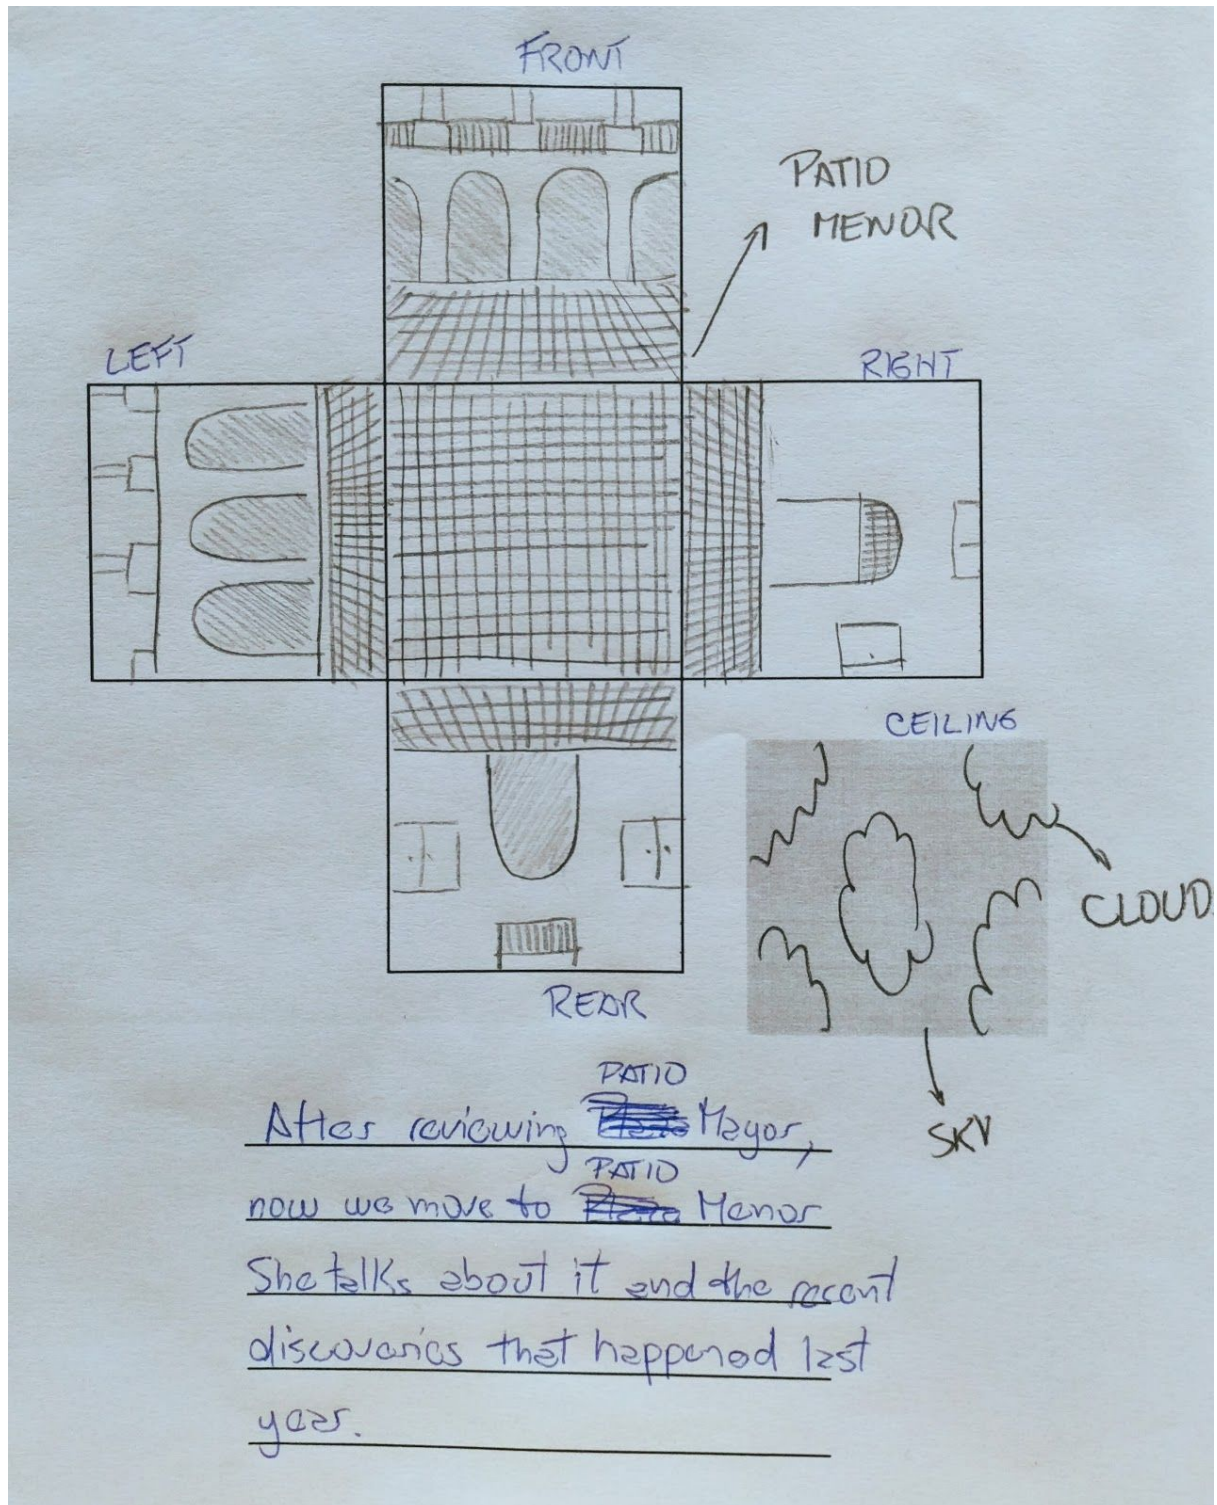 FRONT
PATIO
MENOR
LEFT
RIGHT
CEILING
CLOUD
REAR
SKY
PATIO
After reviewing Mayor,
PATIO
now we move to Menor
She talks about it and the recent
discoveries that happened last
year.